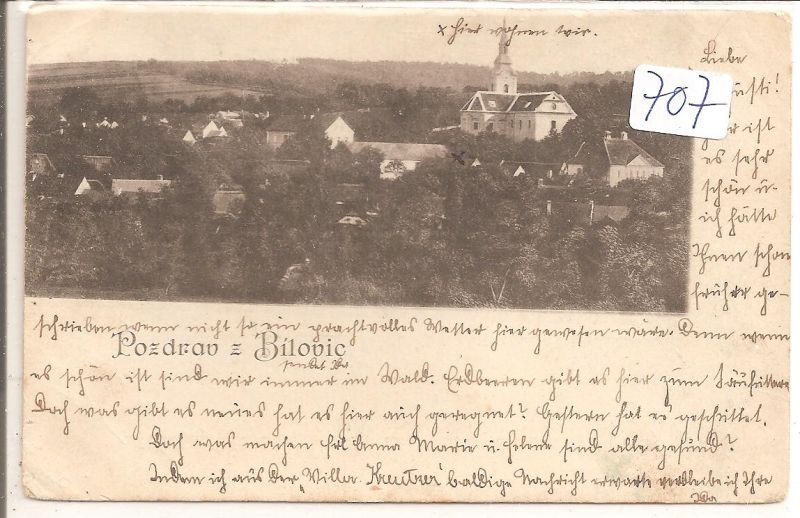 x hier wohnen wir.
707
Liebe
usti!
ist
es sehr
schön u-
ich hätte
Ihnen schon
früher ge-
schrieben wenn nicht so ein prachtvolles Wetter hier gewesen wäre. Denn wenn
Pozdrav z Bílovic
es schön ist sind wir immer im Wald. Erdbeeren gibt es hier zum
Doch was gibt es neues hat es hier auch geregnet? Gestern hat es geschüttet.
Doch was machen Frl Anna Marie u. Helene sind alle gesund?
Indem ich aus der "Villa Kreutzer" baldige Nachricht erwarte verbleibe ich Ihre